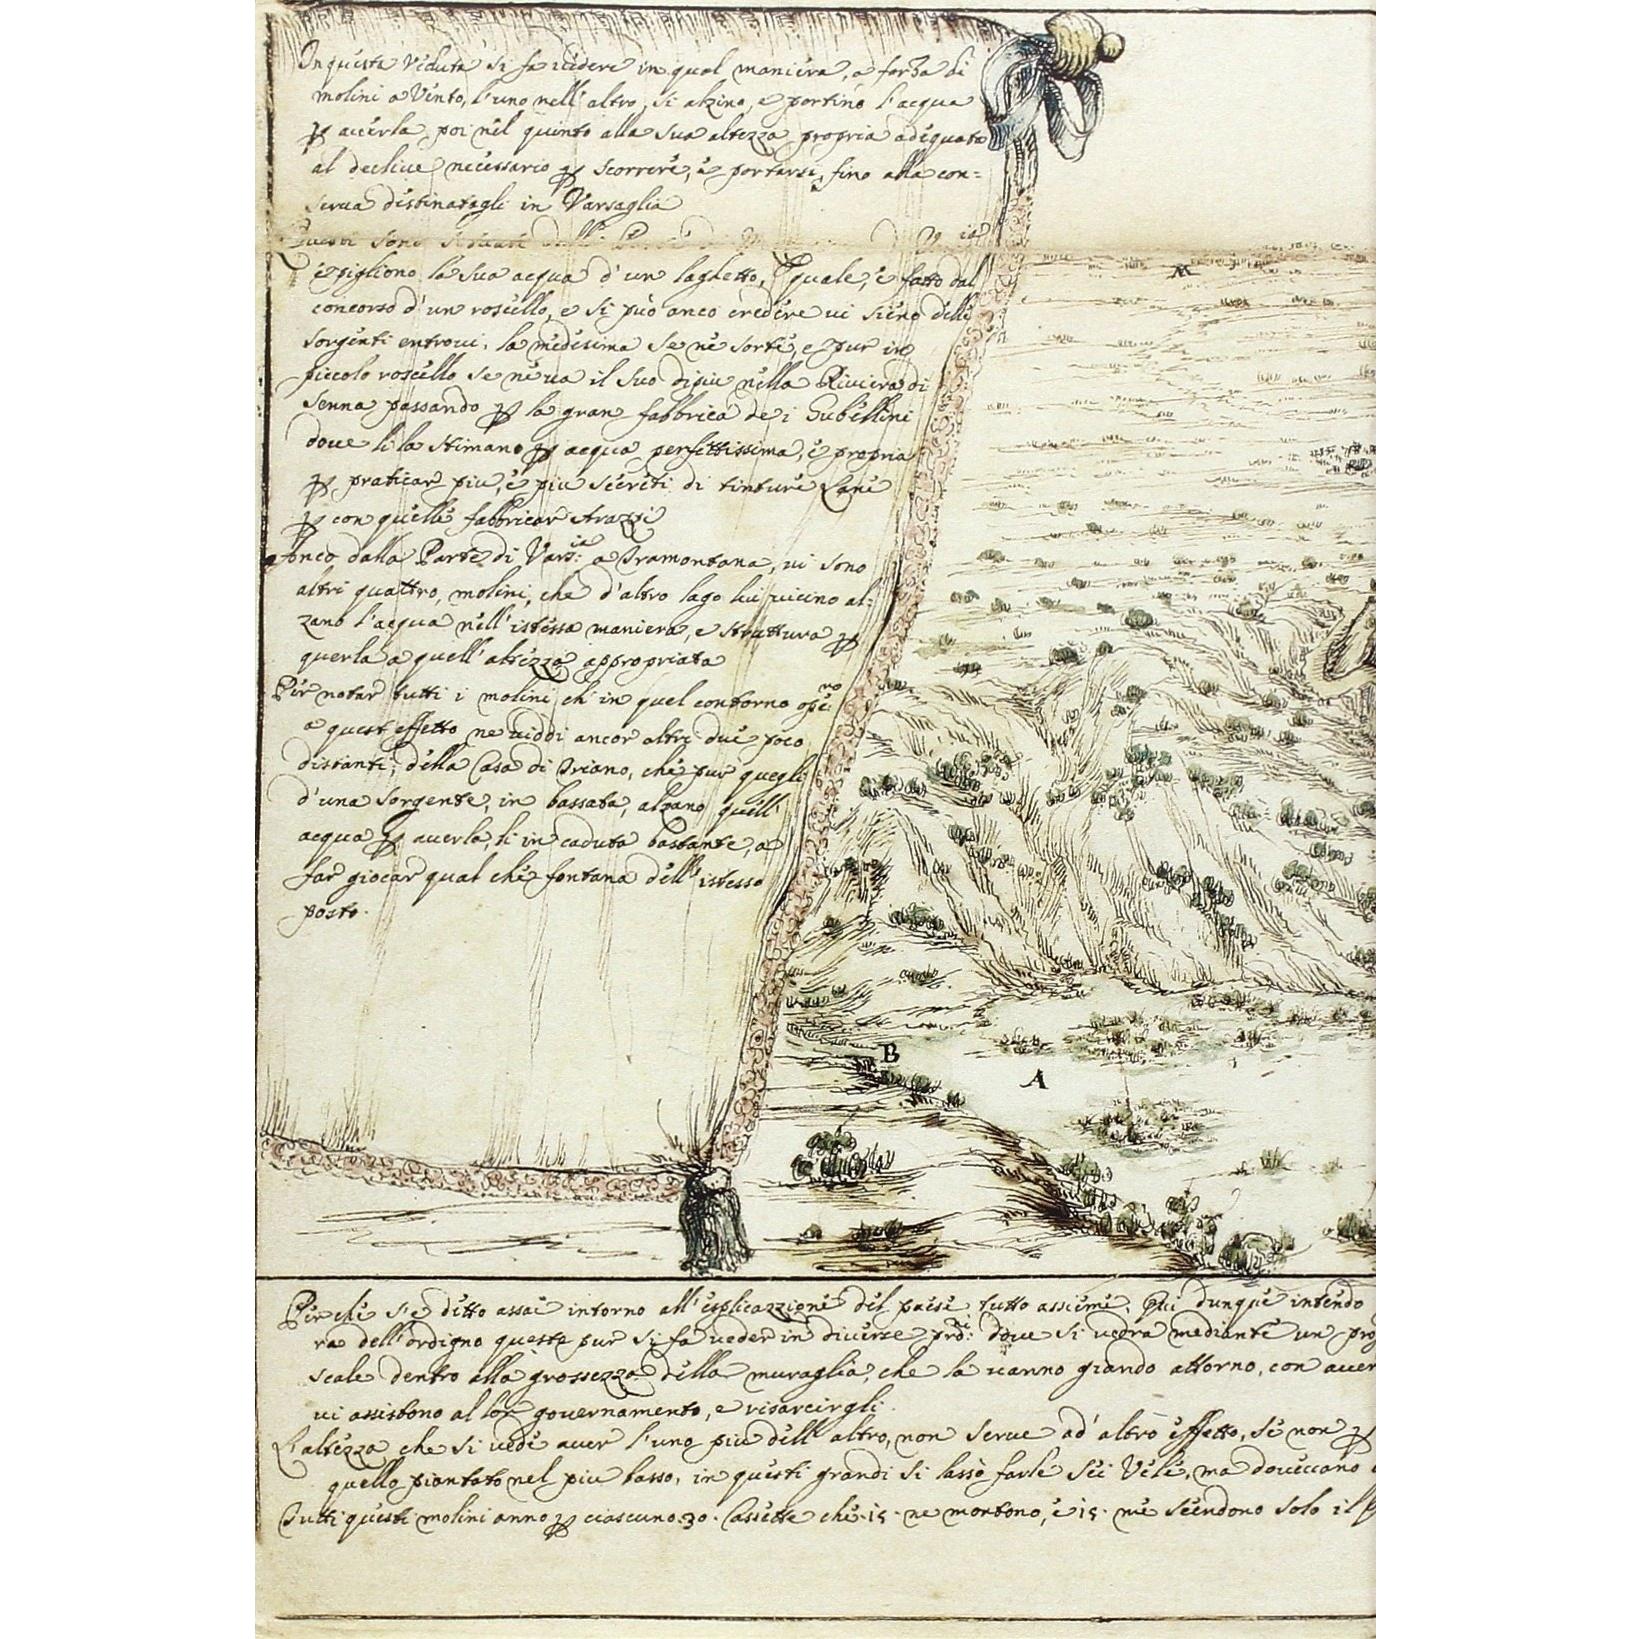 In questa Veduta si fa vedere in qual maniera, a forza di
molini a Vento, l'uno nell'altro, si alzino, e portino l'acqua
ꝑ averla poi nel quinto alla sua altezza propria adequata
al declive necessario ꝑ scorrere, e portarsi, fino alla con=
serva distinatagli in Varsaglia
Questi sono situati dalla
e pigliono la sua acqua d'un laghetto, quale, è fatto dal
concorso d'un roscello, e si può anco credere vi sieno delle
sorgenti entrovi, la medesima se ne sorte, e pur in
piccolo roscello se ne va il suo di più nella Riviera di
Senna passando ꝑ la gran fabbrica de i Gubellini
dove li la stimano ꝑ acqua perfettissima, e propria
ꝑ praticar più, e più secreti di tinture Lane
ꝑ con quelle fabbricar Arazzi
Anco dalla Parte di Vars:ia a Tramontana, vi sono
altri quattro, molini, che d'altro lago lui vicino al:
zano l'acqua nell'istessa maniera, e struttura ꝑ
querla a quell'altezza appropriata
Per notar tutti i molini ch'in quel contorno ope:no
a quest effetto ne viddi ancor altri due poco
distanti, della Casa di Triano, che pur quegli
d'una sorgente, in bassata, alzano quell'
acqua ꝑ averla, li in caduta bastante, a
far giocar qual che fontana dell'istesso
posto.
M
B
A
Perche si è ditto assai intorno all'esplicazzione del paese tutto assieme. Qui dunque intendo
ra dell'ordigno queste pur si fa veder in diverse prō:ni dove si vedrà mediante un pro
scale dentro alla grossezza della muraglia, che la vanno girando attorno, con aver
vi assistono al lor governamento, e risarcirgli.
L'altezza che si vede aver l'uno più dell'altro, non serve ad'altro effetto, se non ꝑ
quello piantato nel più basso, in questi grandi si lassò farle sei Vele, ma dovevano
Tutti questi molini anno ꝑ ciascuno 30. Cassette che .15. ne montono, e 15. ne scendono solo il